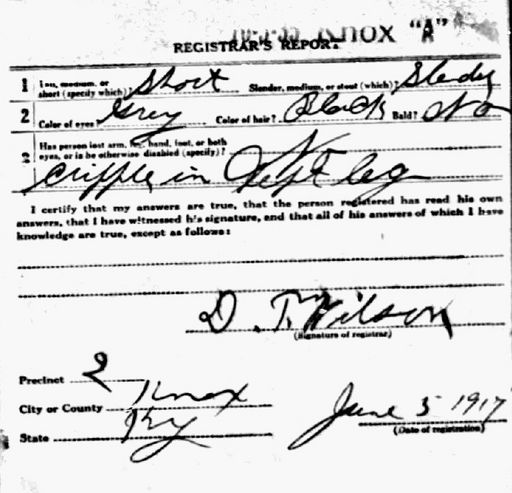 KNOX "A"
REGISTRAR'S REPORT
1 Tall, medium, or short (specify which)? Short Slender, medium, or stout (which)? Slender
2 Color of eyes? Grey Color of hair? Black Bald? No
3 Has person lost arm, leg, hand, foot, or both
eyes, or is he otherwise disabled (specify)?
cripple in left leg
I certify that my answers are true, that the person registered has read his own
answers, that I have witnessed his signature, and that all of his answers of which I have
knowledge are true, except as follows:
D. T. Wilson
(Signature of registrar)
Precinct 2
City or County Knox
State Ky
June 5 1917
(Date of registration)